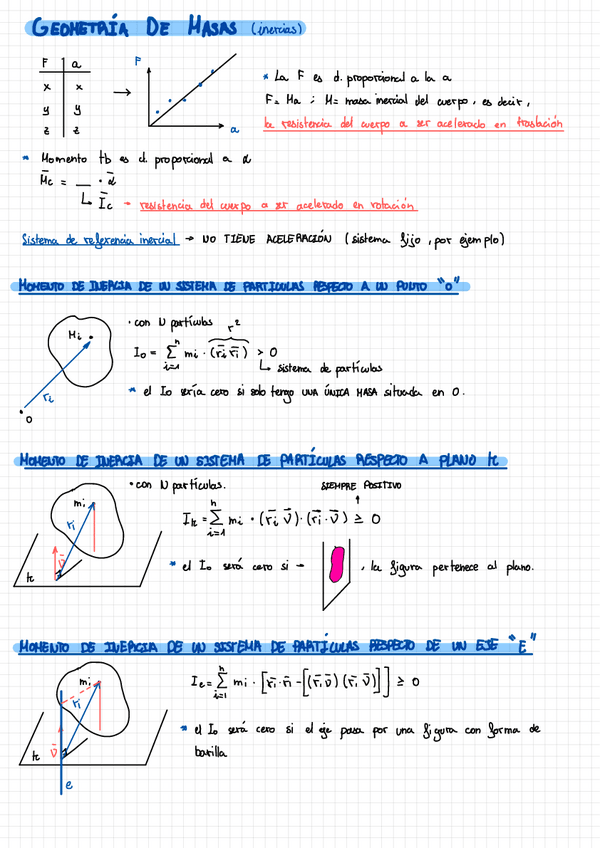 GEOMETRÍA DE MASAS (inercias)
F a
x x
y y
z z
F
a
* La F es d. proporcional a la a
F = Ma ; M = masa inercial del cuerpo, es decir,
la resistencia del cuerpo a ser acelerado en traslación
* Momento tb es d. proporcional a α
M̄c = __ · ᾱ
↳ Īc → resistencia del cuerpo a ser acelerado en rotación
Sistema de referencia inercial → NO TIENE ACELERACIÓN (sistema fijo, por ejemplo)
MOMENTO DE INERCIA DE UN SISTEMA DE PARTICULAS RESPECTO A UN PUNTO "O"
Mi
r̄i
O
· con N partículas
r²
Io = Σ mi · (r̄i r̄i) > 0
n
i=1
↳ sistema de partículas
* el Io sería cero si solo tengo UNA ÚNICA MASA situada en O.
MOMENTO DE INERCIA DE UN SISTEMA DE PARTÍCULAS RESPECTO A PLANO π
mi
r̄i
v̄
π
· con N partículas.
SIEMPRE POSITIVO
Iπ = Σ mi · (r̄i v̄) · (r̄i · v̄) ≥ 0
n
i=1
* el Io será cero si → , la figura pertenece al plano.
MOMENTO DE INERCIA DE UN SISTEMA DE PARTÍCULAS RESPECTO DE UN EJE "E"
mi
r̄i
v̄
π
e
Ie = Σ mi · [r̄i · r̄i - [(r̄i v̄) (r̄i v̄)]] ≥ 0
n
i=1
* el Io será cero si el eje pasa por una figura con forma de
barilla